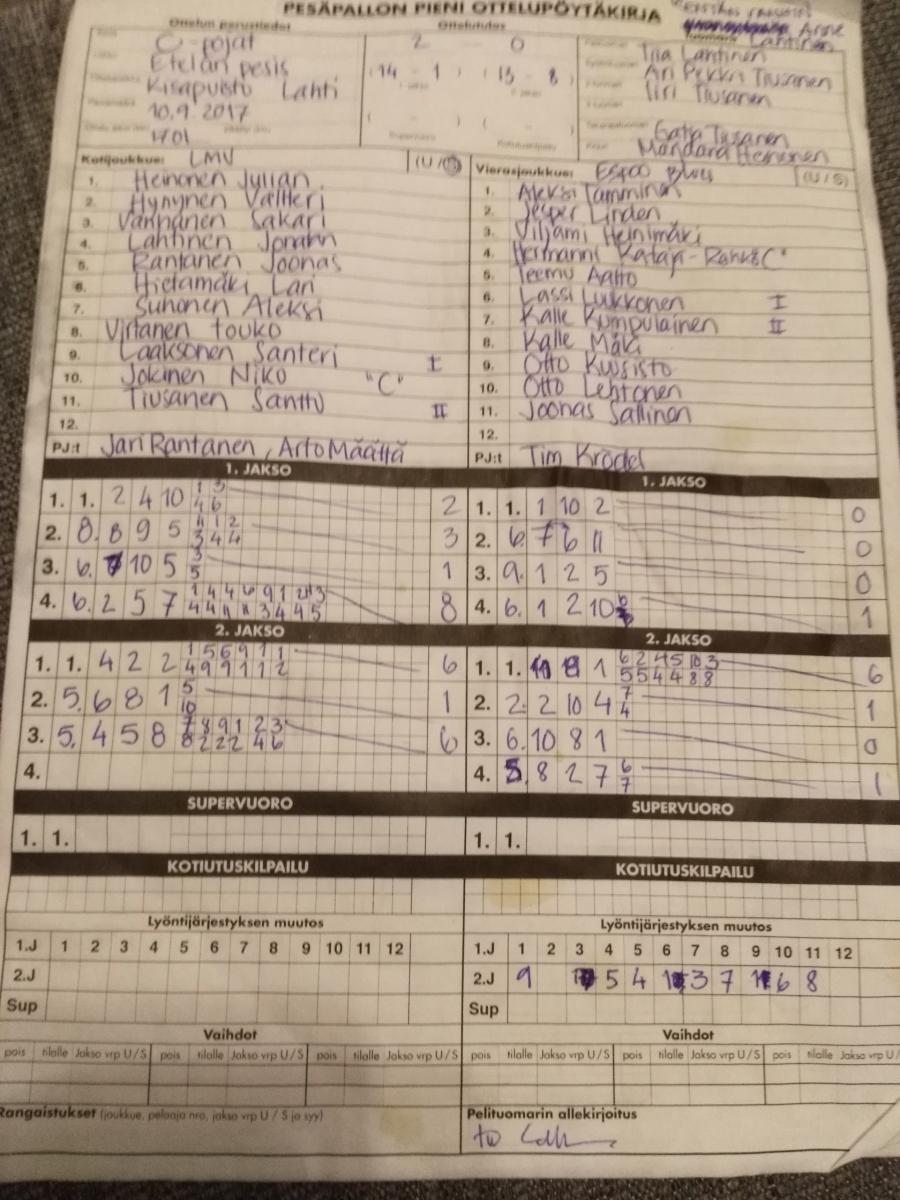 PESÄPALLON PIENI OTTELUPÖYTÄKIRJA
Anne
Lahtinen
Ottelun perustiedot
Ottelutulos
C-pojat
2 0
Etelän pesis
(14 - 1) (13 - 8)
Kisapuisto Lahti
10.9.2017
1701
( - ) ( - )
Tiia Lahtinen
Ari Pekka Tiusanen
Tiri Tiusanen
Tiusanen
Mandara Heinonen
Kotijoukkue: LMV (U/S)
1. Heinonen Julian
2. Hynynen Valtteri
3. Vanhanen Sakari
4. Lahtinen Jonatan
5. Rantanen Joonas
6. Hietamäki Lari
7. Suhonen Aleksi
8. Virtanen Touko
9. Laaksonen Santeri I
10. Jokinen Niko "C"
11. Tiusanen Santtu II
12.
PJ:t Jari Rantanen, Arto Määttä
Vierasjoukkue: Espoo Blues (U/S)
1. Aleksi Tamminen
2. Jesper Linden
3. Viljami Heinimäki
4. Hermanni Kataja- "C"
5. Teemu Aalto
6. Lassi Luikkonen I
7. Kalle Kumpulainen II
8. Kalle Mäki
9. Otto Kuusisto
10. Otto Lehtonen
11. Joonas Sallinen
12.
PJ:t Tim Krödel
1. JAKSO
1. 1. 2 4 10 1 3 2
4 6
2. 8. 8 9 5 11 1 2 3
3 4 4
3. 6. 10 5 3 1
5
4. 6. 2 5 7 8
2. JAKSO
1. 1. 4 2 2 1 5 6 9 1 1 6
4 9 9 1 1 2
2. 5. 6 8 1 5 1
10
3. 5. 4 5 8 7 8 9 1 2 3 6
8 2 2 2 4 6
4.
SUPERVUORO
1. 1.
KOTIUTUSKILPAILU
Lyöntijärjestyksen muutos
1.J 1 2 3 4 5 6 7 8 9 10 11 12
2.J
Sup
Vaihdot
pois tilalle Jakso vrp U/S pois tilalle Jakso vrp U/S pois tilalle Jakso vrp U/S
Rangaistukset (joukkue, pelaaja nro, jakso vrp U / S ja syy)
1. JAKSO
1. 1. 1 10 2 0
2. 6. 7 6 11 0
3. 9. 1 2 5 0
4. 6. 1 2 10 6 1
2. JAKSO
1. 1. 1 6 2 4 5 10 3 6
5 5 4 4 8 8
2. 2. 2 10 4 7 1
4
3. 6. 10 8 1 0
4. 5. 8 2 7 6 1
7
SUPERVUORO
1. 1.
KOTIUTUSKILPAILU
Lyöntijärjestyksen muutos
1.J 1 2 3 4 5 6 7 8 9 10 11 12
2.J 9 5 4 3 7 6 8
Sup
Vaihdot
pois tilalle Jakso vrp U/S pois tilalle Jakso vrp U/S pois tilalle Jakso vrp U/
Pelituomarin allekirjoitus